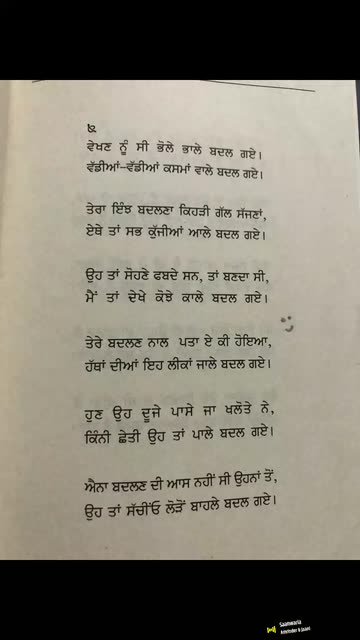 ੬
ਵੇਖਣ ਨੂੰ ਸੀ ਭੋਲੇ ਭਾਲੇ ਬਦਲ ਗਏ।
ਵੱਡੀਆਂ-ਵੱਡੀਆਂ ਕਸਮਾਂ ਵਾਲੇ ਬਦਲ ਗਏ।
ਤੇਰਾ ਇੰਝ ਬਦਲਣਾ ਕਿਹੜੀ ਗੱਲ ਸੱਜਣਾਂ,
ਏਥੇ ਤਾਂ ਸਭ ਕੁੱਜੀਆਂ ਆਲੇ ਬਦਲ ਗਏ।
ਉਹ ਤਾਂ ਸੋਹਣੇ ਫਬਦੇ ਸਨ, ਤਾਂ ਬਣਦਾ ਸੀ,
ਮੈਂ ਤਾਂ ਦੇਖੇ ਕੋਝੇ ਕਾਲੇ ਬਦਲ ਗਏ।
ਤੇਰੇ ਬਦਲਣ ਨਾਲ ਪਤਾ ਏ ਕੀ ਹੋਇਆ,
ਹੱਥਾਂ ਦੀਆਂ ਇਹ ਲੀਕਾਂ ਜਾਲੇ ਬਦਲ ਗਏ।
ਹੁਣ ਉਹ ਦੂਜੇ ਪਾਸੇ ਜਾ ਖਲੋਤੇ ਨੇ,
ਕਿੰਨੀ ਛੇਤੀ ਉਹ ਤਾਂ ਪਾਲੇ ਬਦਲ ਗਏ।
ਐਨਾ ਬਦਲਣ ਦੀ ਆਸ ਨਹੀਂ ਸੀ ਉਹਨਾਂ ਤੋਂ,
ਉਹ ਤਾਂ ਸੱਚੀਂਓ ਲੋੜੋਂ ਬਾਹਲੇ ਬਦਲ ਗਏ।
Saanwaria